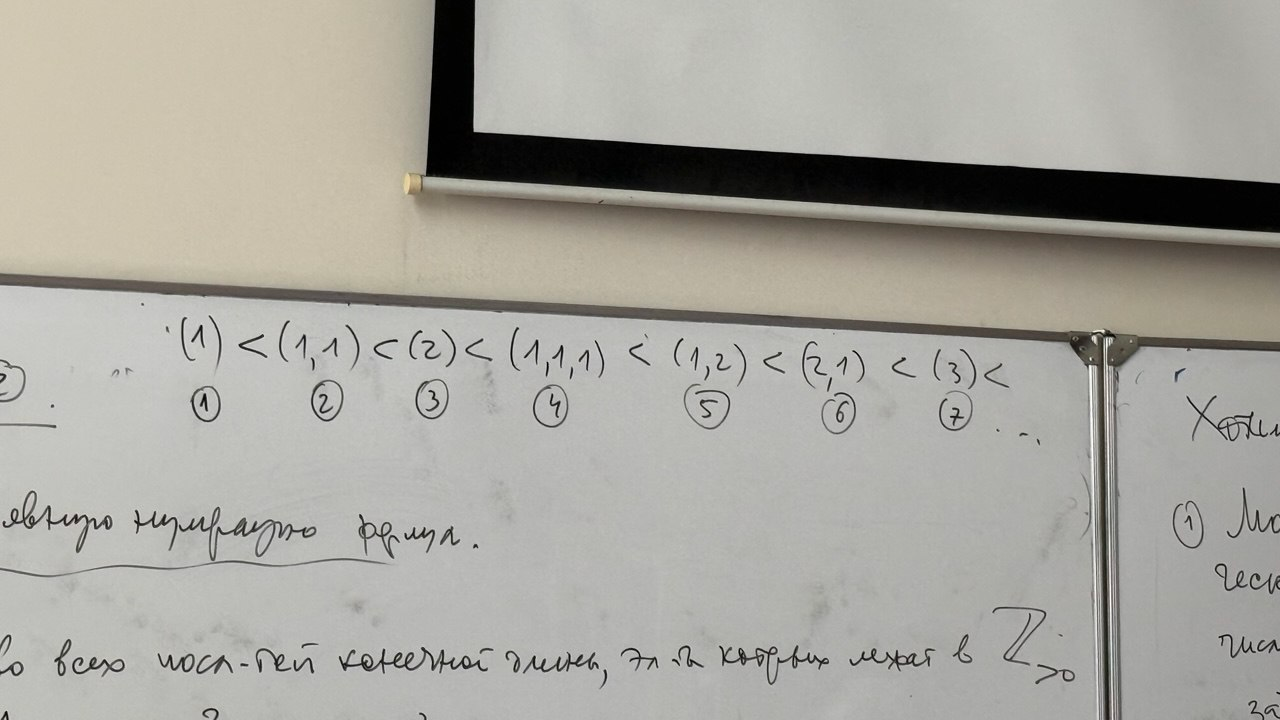 (1) < (1,1) < (2) < (1,1,1) < (1,2) < (2,1) < (3) <
2) . ① ② ③ ④ ⑤ ⑥ ⑦ ...
явную нумерацию формул.
во всех посл-тей конечной длины, эл-ты которых лежат в ℤ>0
① Мо
ческ
числ
за